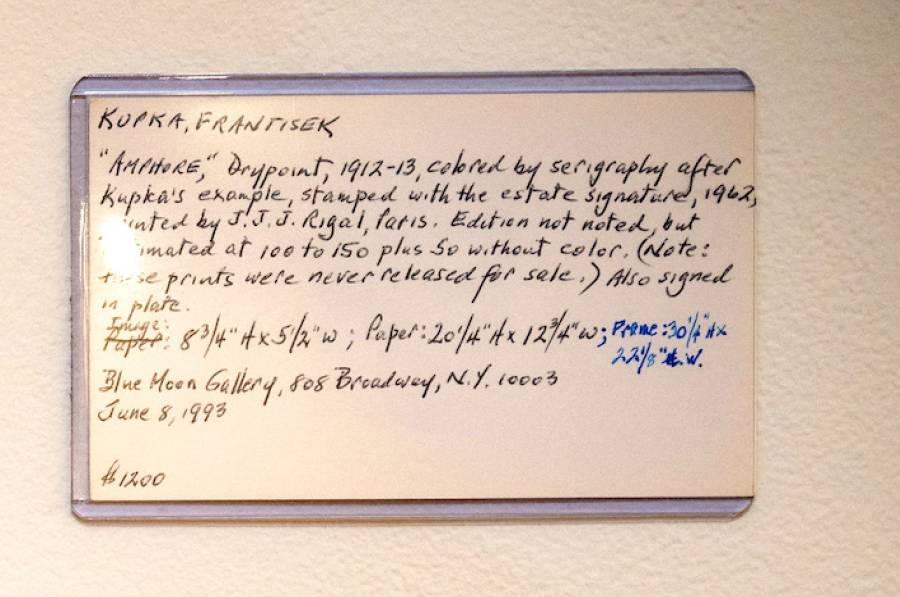 KUPKA, FRANTISEK
"AMPHORE," Drypoint, 1912-13, colored by serigraphy after
Kupka's example, stamped with the estate signature, 1962,
printed by J.J.J. Rigal, Paris. Edition not noted, but
estimated at 100 to 150 plus 50 without color. (Note:
these prints were never released for sale.) Also signed
in plate.
Image:
Paper: 8 3/4" H x 5 1/2" W ; Paper: 20 1/4" H x 12 3/4" W; Frame: 30 1/4" H x
22 1/8" W.
Blue Moon Gallery, 808 Broadway, N.Y. 10003
June 8, 1993
$1200